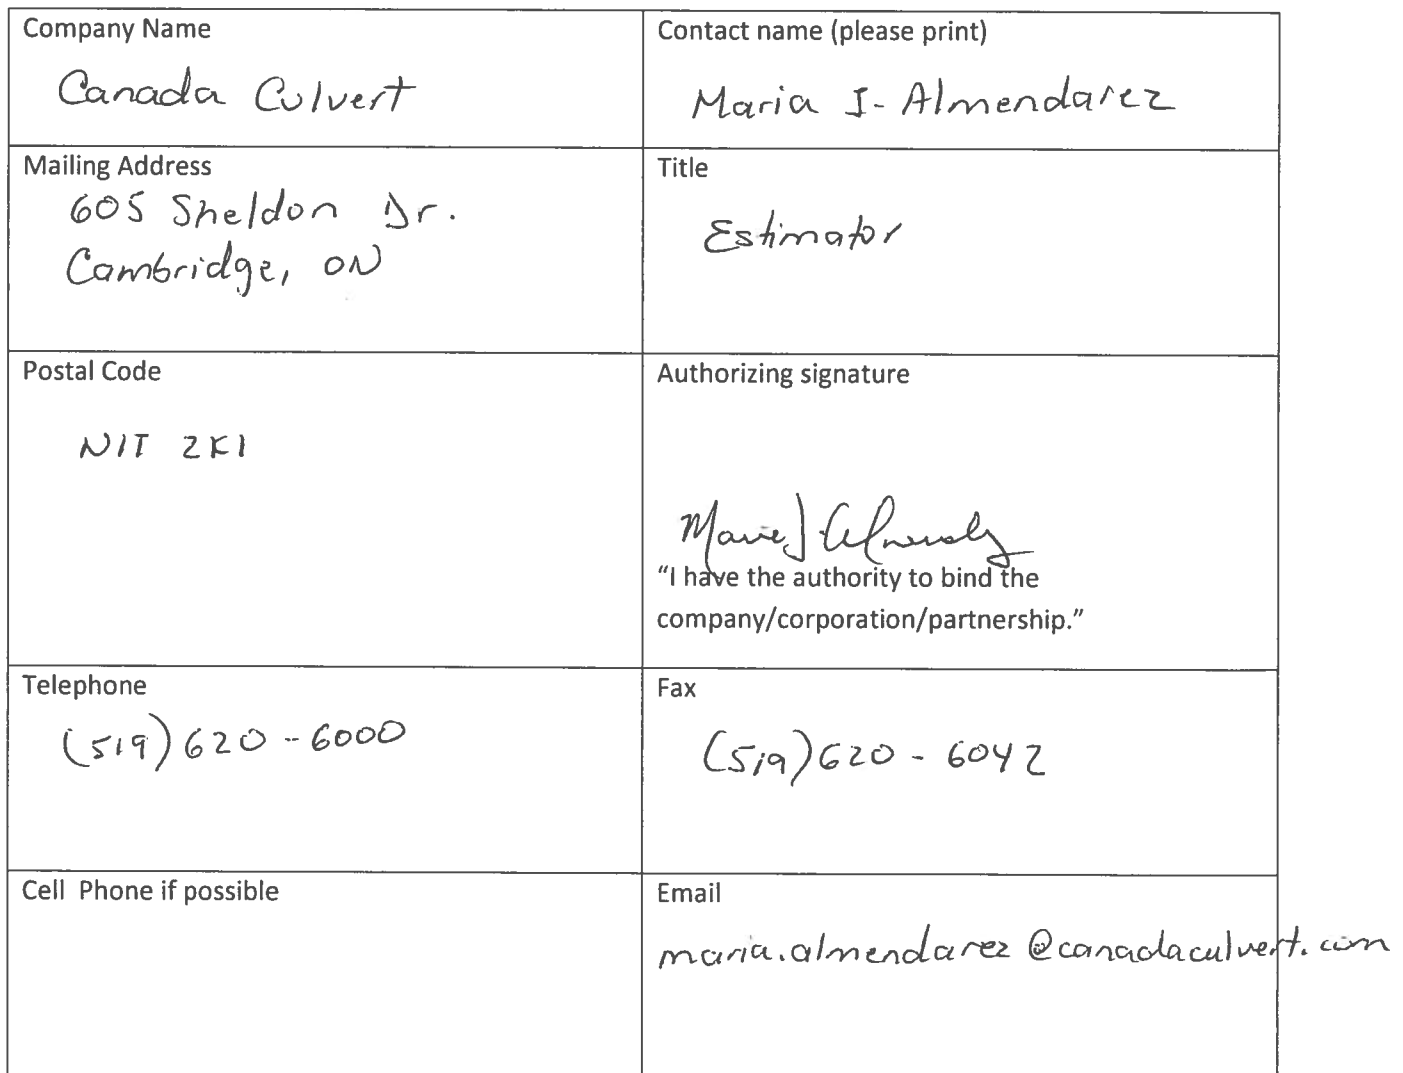 Company Name
Canada Culvert
Contact name (please print)
Maria I- Almendarez
Mailing Address
605 Sheldon Dr.
Cambridge, ON
Title
Estimator
Postal Code
N1T 2K1
Authorizing signature
"I have the authority to bind the
company/corporation/partnership."
Telephone
(519) 620 - 6000
Fax
(519) 620 - 6042
Cell Phone if possible
Email
maria.almendarez@canadaculvert.com